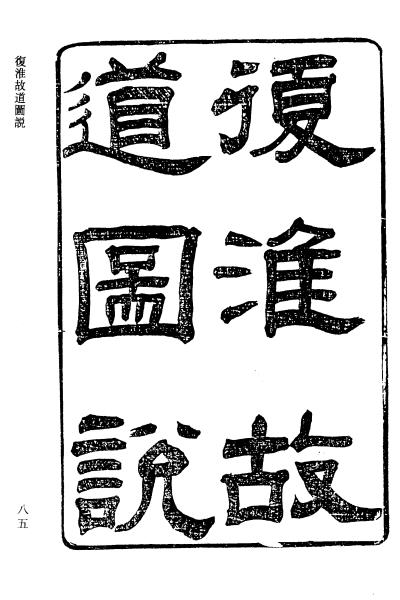 復淮故
道圖說
復淮故道圖說
八五